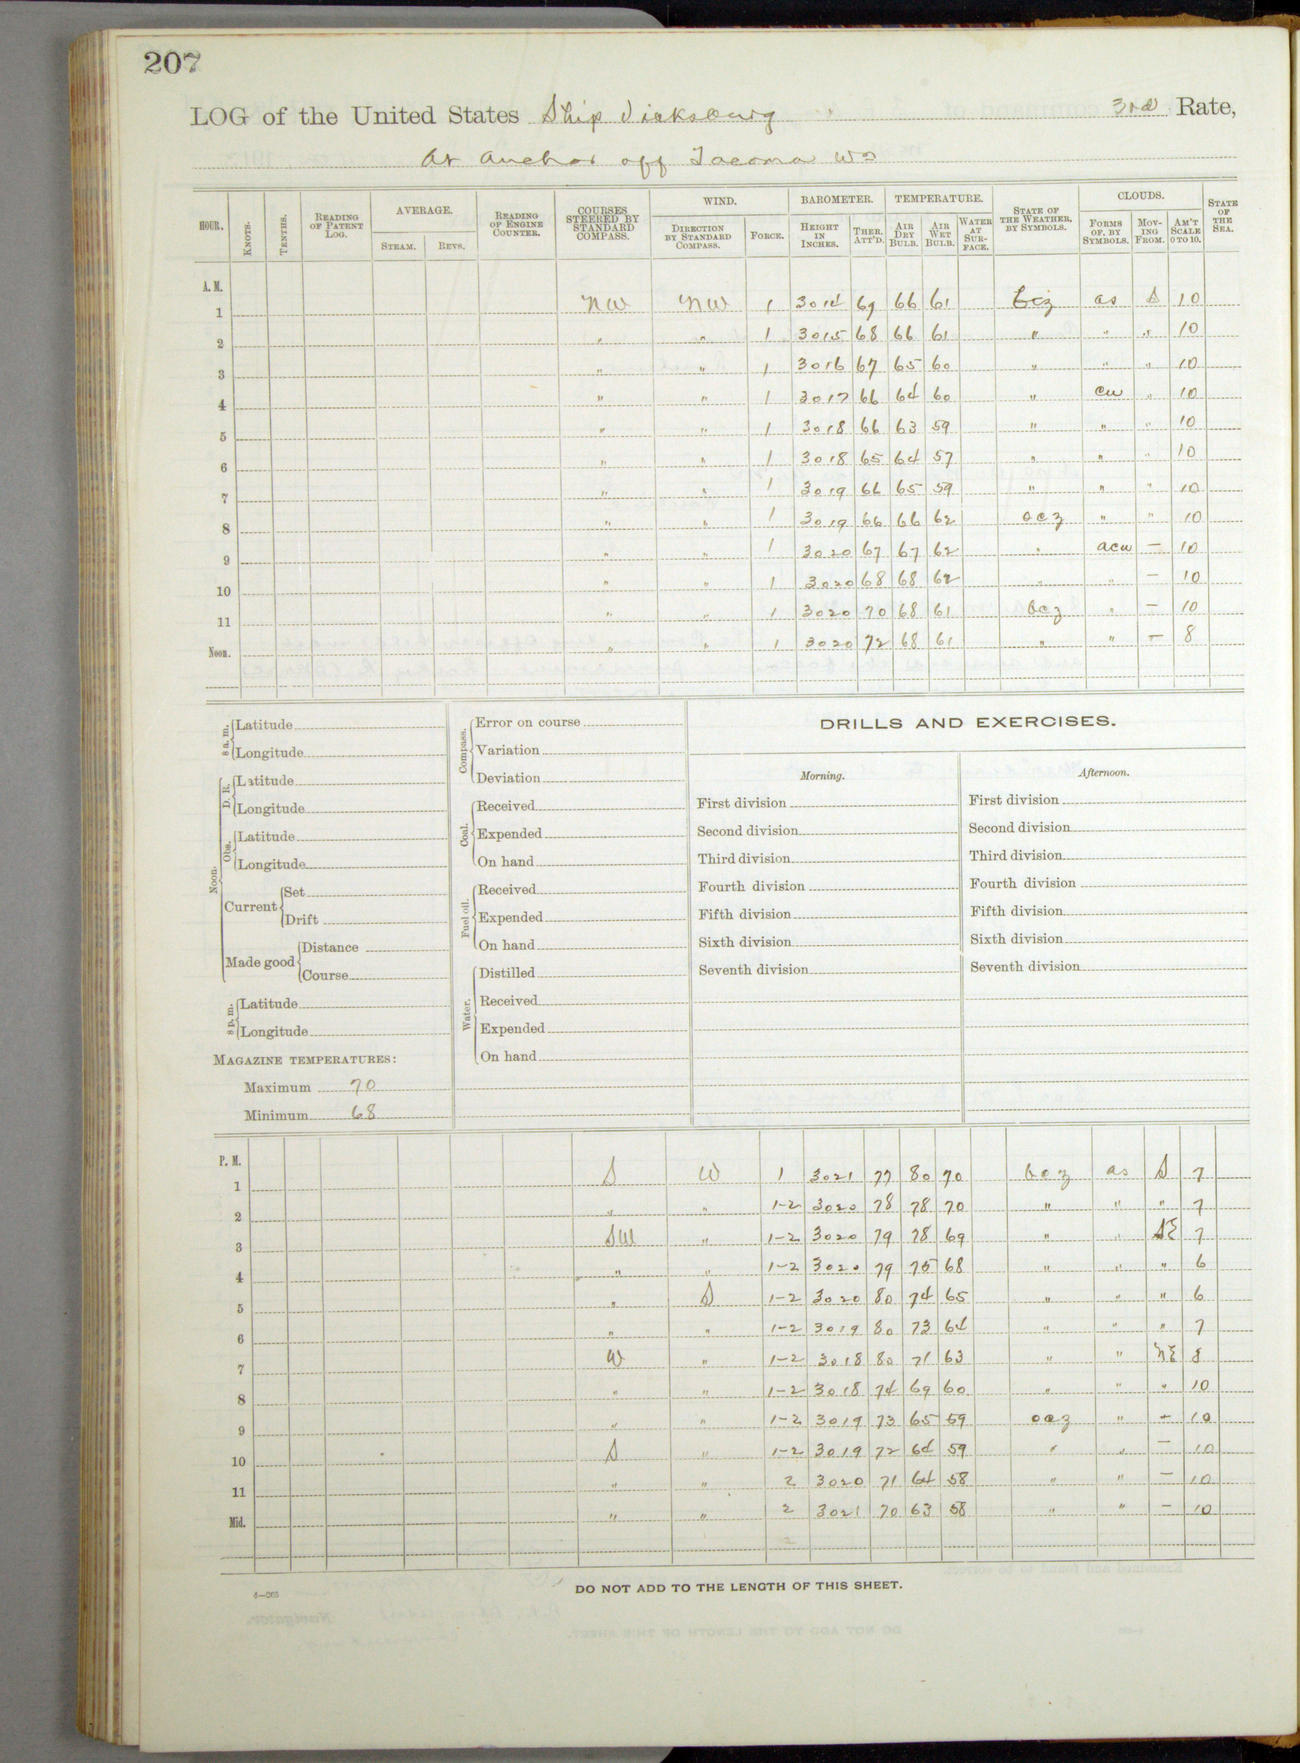 207
LOG of the United States Ship Vicksburg 3rd Rate,
At Anchor off Tacoma Wn
HOUR. KNOTS. TENTHS. READING OF PATENT LOG. AVERAGE. STEAM. REVS. READING OF ENGINE COUNTER. COURSES STEERED BY STANDARD COMPASS. WIND. DIRECTION BY STANDARD COMPASS. FORCE. BAROMETER. HEIGHT IN INCHES. THER. ATT'D. TEMPERATURE. AIR DRY BULB. AIR WET BULB. WATER AT SURFACE. STATE OF THE WEATHER, BY SYMBOLS. CLOUDS. FORMS OF, BY SYMBOLS. MOVING FROM. AM'T SCALE 0 TO 10. STATE OF THE SEA.
A. M.
1 NW NW 1 3014 69 66 61 bcz as S 10
2 " " 1 3015 68 66 61 " " " 10
3 " " 1 3016 67 65 60 " " " 10
4 " " 1 3017 66 64 60 " cu " 10
5 " " 1 3018 66 63 59 " " " 10
6 " " 1 3018 65 64 57 " " " 10
7 " " 1 3019 66 65 59 " " " 10
8 " " 1 3019 66 66 62 ocz " " 10
9 " " 1 3020 67 67 62 " acu — 10
10 " " 1 3020 68 68 62 " " — 10
11 " " 1 3020 70 68 61 bcz " — 10
Noon. " " 1 3020 72 68 61 " " — 8
8 a. m. Latitude
Longitude
Noon. D. R. Latitude
Longitude
Obs. Latitude
Longitude
Current Set
Drift
Made good Distance
Course
8 p. m. Latitude
Longitude
MAGAZINE TEMPERATURES:
Maximum 70
Minimum 68
Compass. Error on course
Variation
Deviation
Coal. Received
Expended
On hand
Fuel oil. Received
Expended
On hand
Water. Distilled
Received
Expended
On hand
DRILLS AND EXERCISES.
Morning.
First division
Second division
Third division
Fourth division
Fifth division
Sixth division
Seventh division
Afternoon.
First division
Second division
Third division
Fourth division
Fifth division
Sixth division
Seventh division
P. M.
1 S W 1 3021 77 80 70 bcz as S 7
2 " " 1-2 3020 78 78 70 " " " 7
3 SW " 1-2 3020 79 78 69 " " SE 7
4 " " 1-2 3020 79 75 68 " " " 6
5 " S 1-2 3020 80 74 65 " " " 6
6 " " 1-2 3019 80 73 64 " " " 7
7 W " 1-2 3018 80 71 63 " " NE 8
8 " " 1-2 3018 74 69 60 " " " 10
9 " " 1-2 3019 73 65 59 ocz " — 10
10 S " 1-2 3019 72 64 59 " " — 10
11 " " 2 3020 71 64 58 " " — 10
Mid. " " 2 3021 70 63 58 " " — 10
DO NOT ADD TO THE LENGTH OF THIS SHEET.